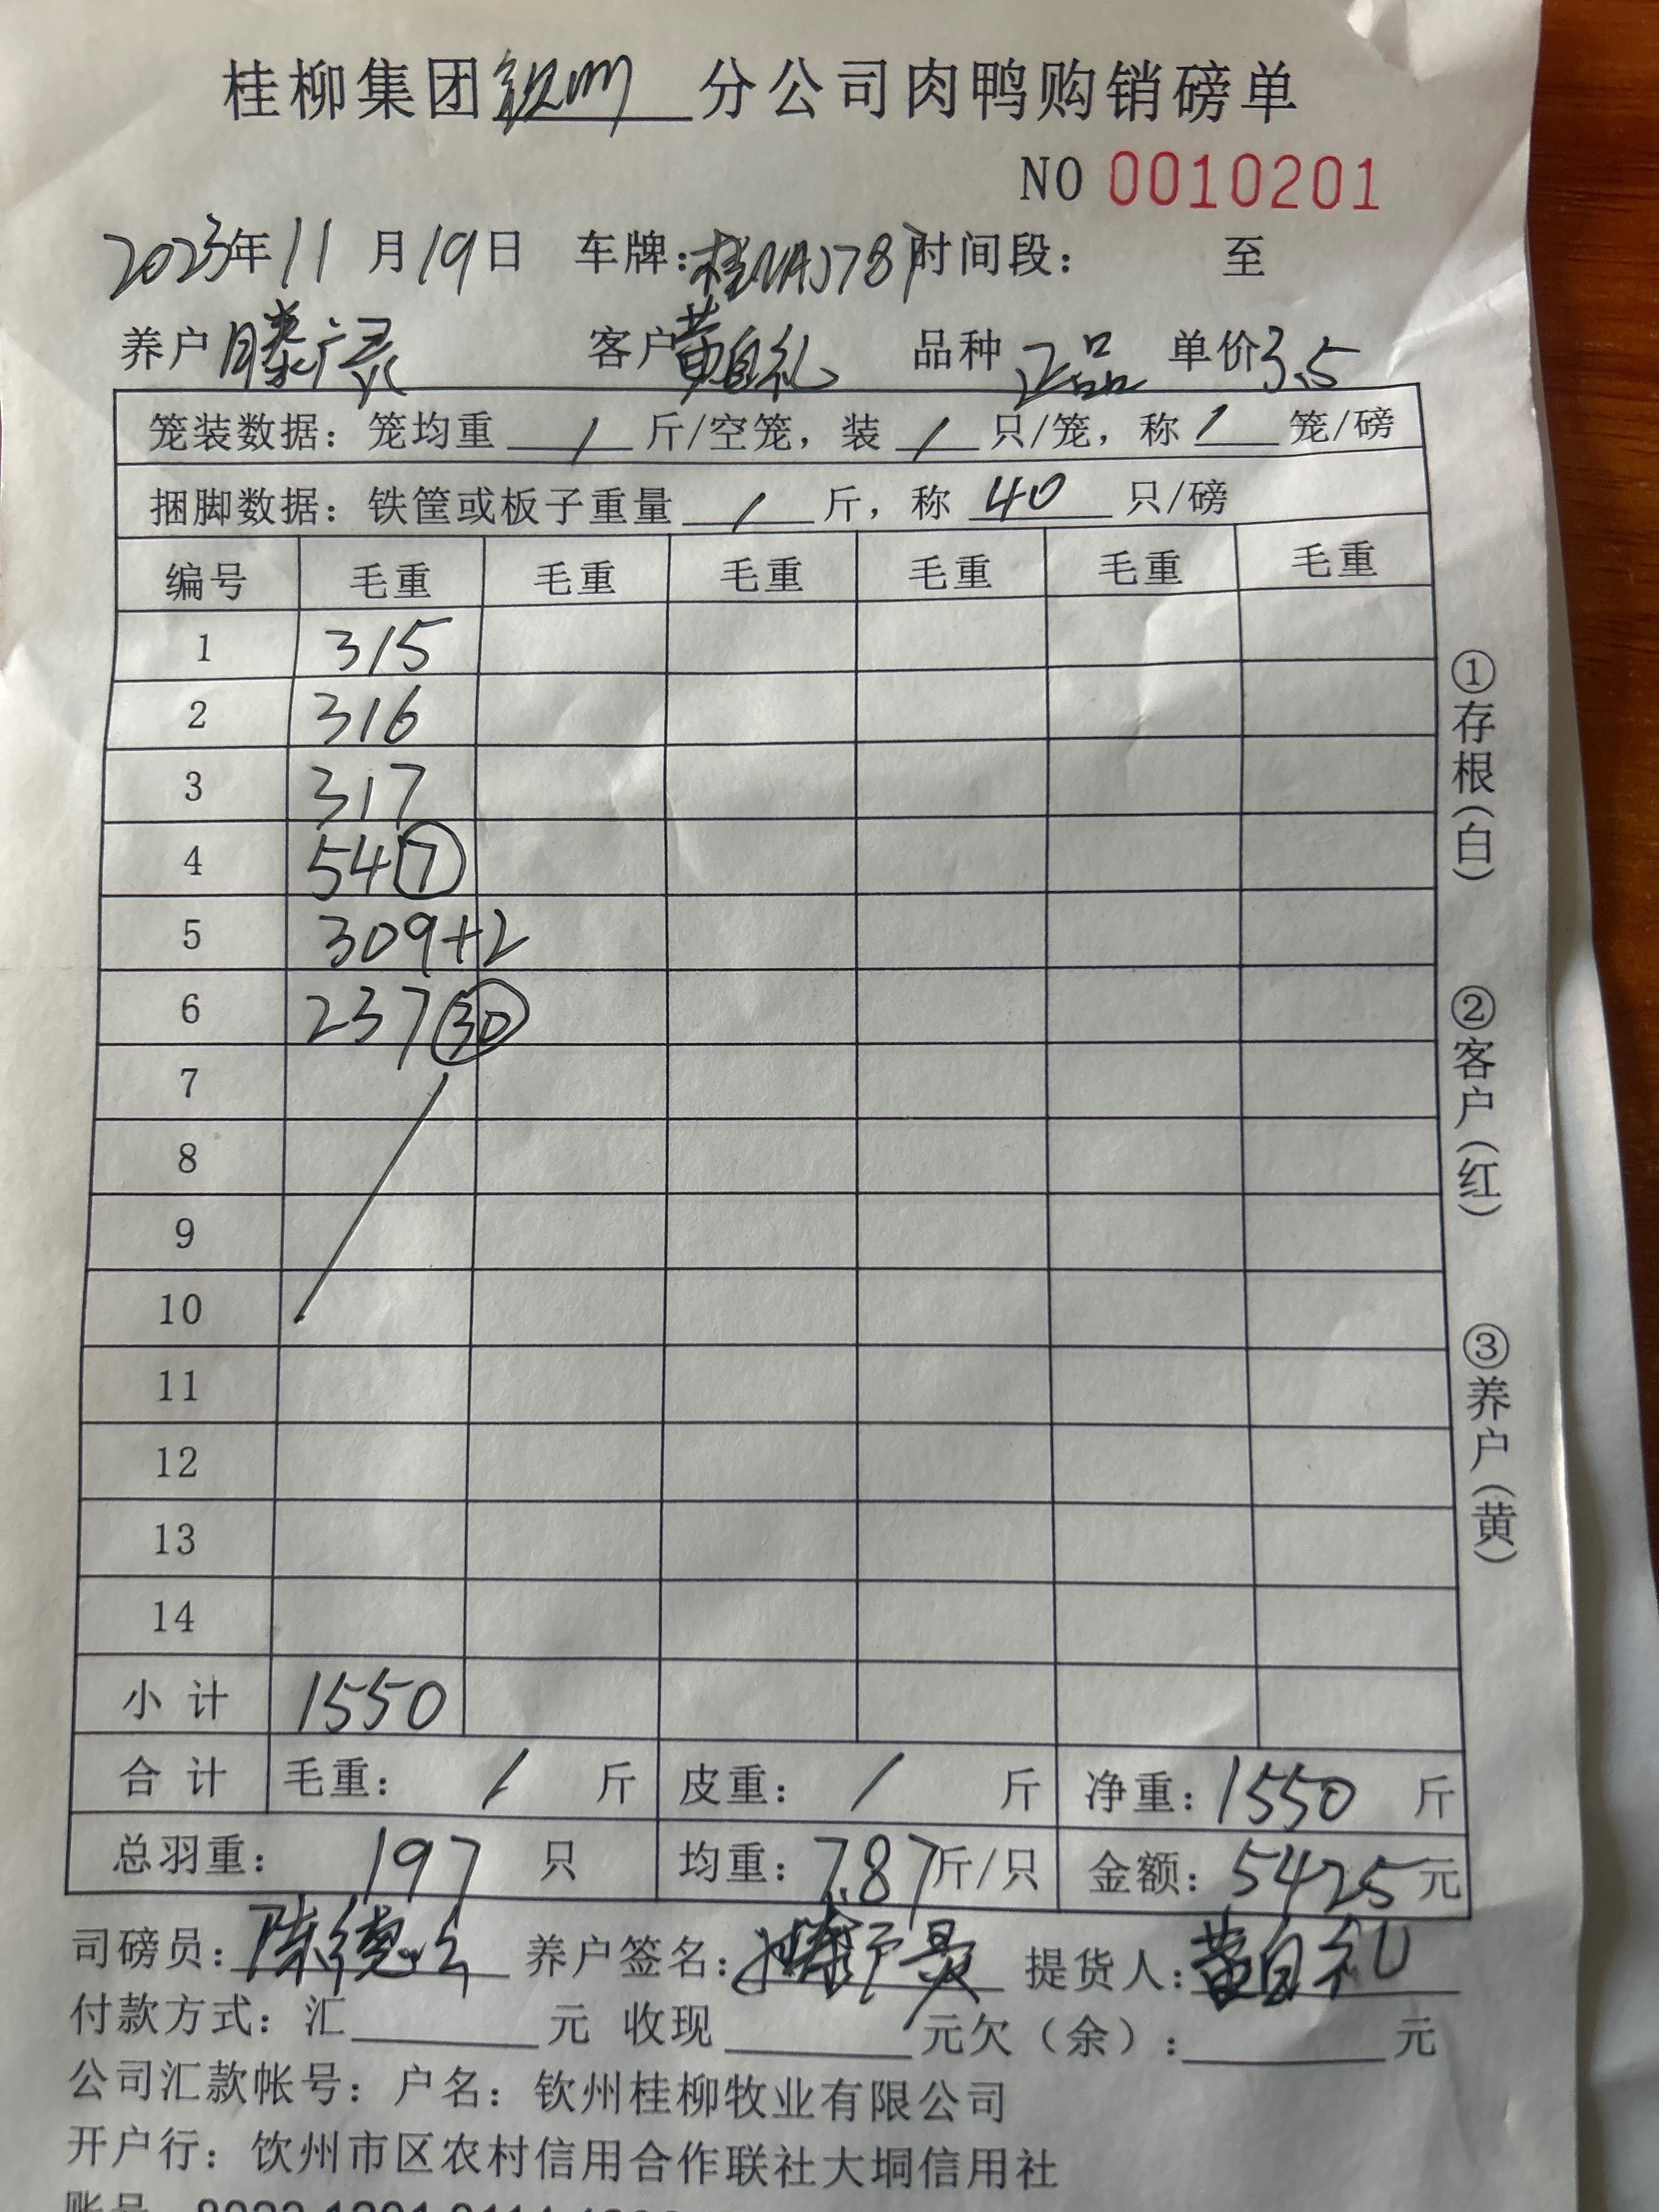 桂柳集团钦州分公司肉鸭购销磅单
NO 0010201
2023年11月19日 车牌:桂NAJ787 时间段: 至
养户 滕广灵 客户 黄自礼 品种 正品 单价 3.5
笼装数据: 笼均重 / 斤/空笼, 装 / 只/笼, 称 / 笼/磅
捆脚数据: 铁筐或板子重量 / 斤, 称 40 只/磅
编号 毛重 毛重 毛重 毛重 毛重 毛重
1 315
2 316
3 317
4 54 ⑦
5 309+2
6 237 ㉚
7
8
9
10
11
12
13
14
小计 1550
合计 毛重: / 斤 皮重: / 斤 净重: 1550 斤
总羽重: 197 只 均重: 7.87 斤/只 金额: 5425 元
司磅员: 陈德 养户签名: 提货人: 黄自礼
付款方式: 汇 元 收现 元欠(余): 元
公司汇款帐号: 户名: 钦州桂柳牧业有限公司
开户行: 钦州市区农村信用合作联社大垌信用社
账号
①存根(白)
②客户(红)
③养户(黄)